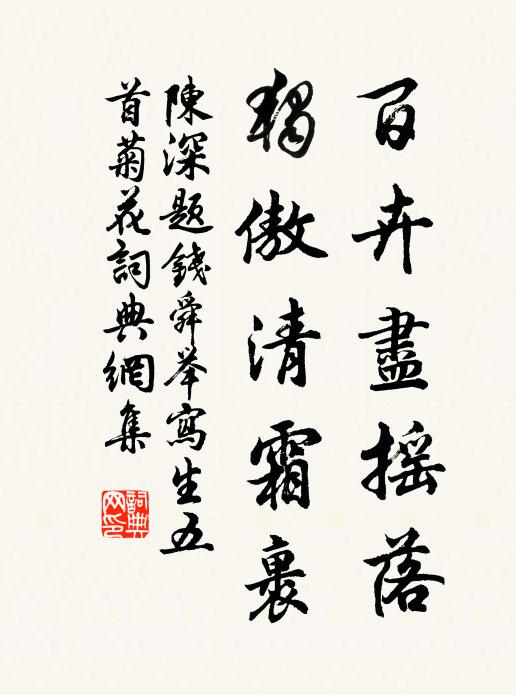 百卉盡摇落
獨傲清霜裏
陳深题錢舜举寫生五
首菊花詞典網集
詞典
网印